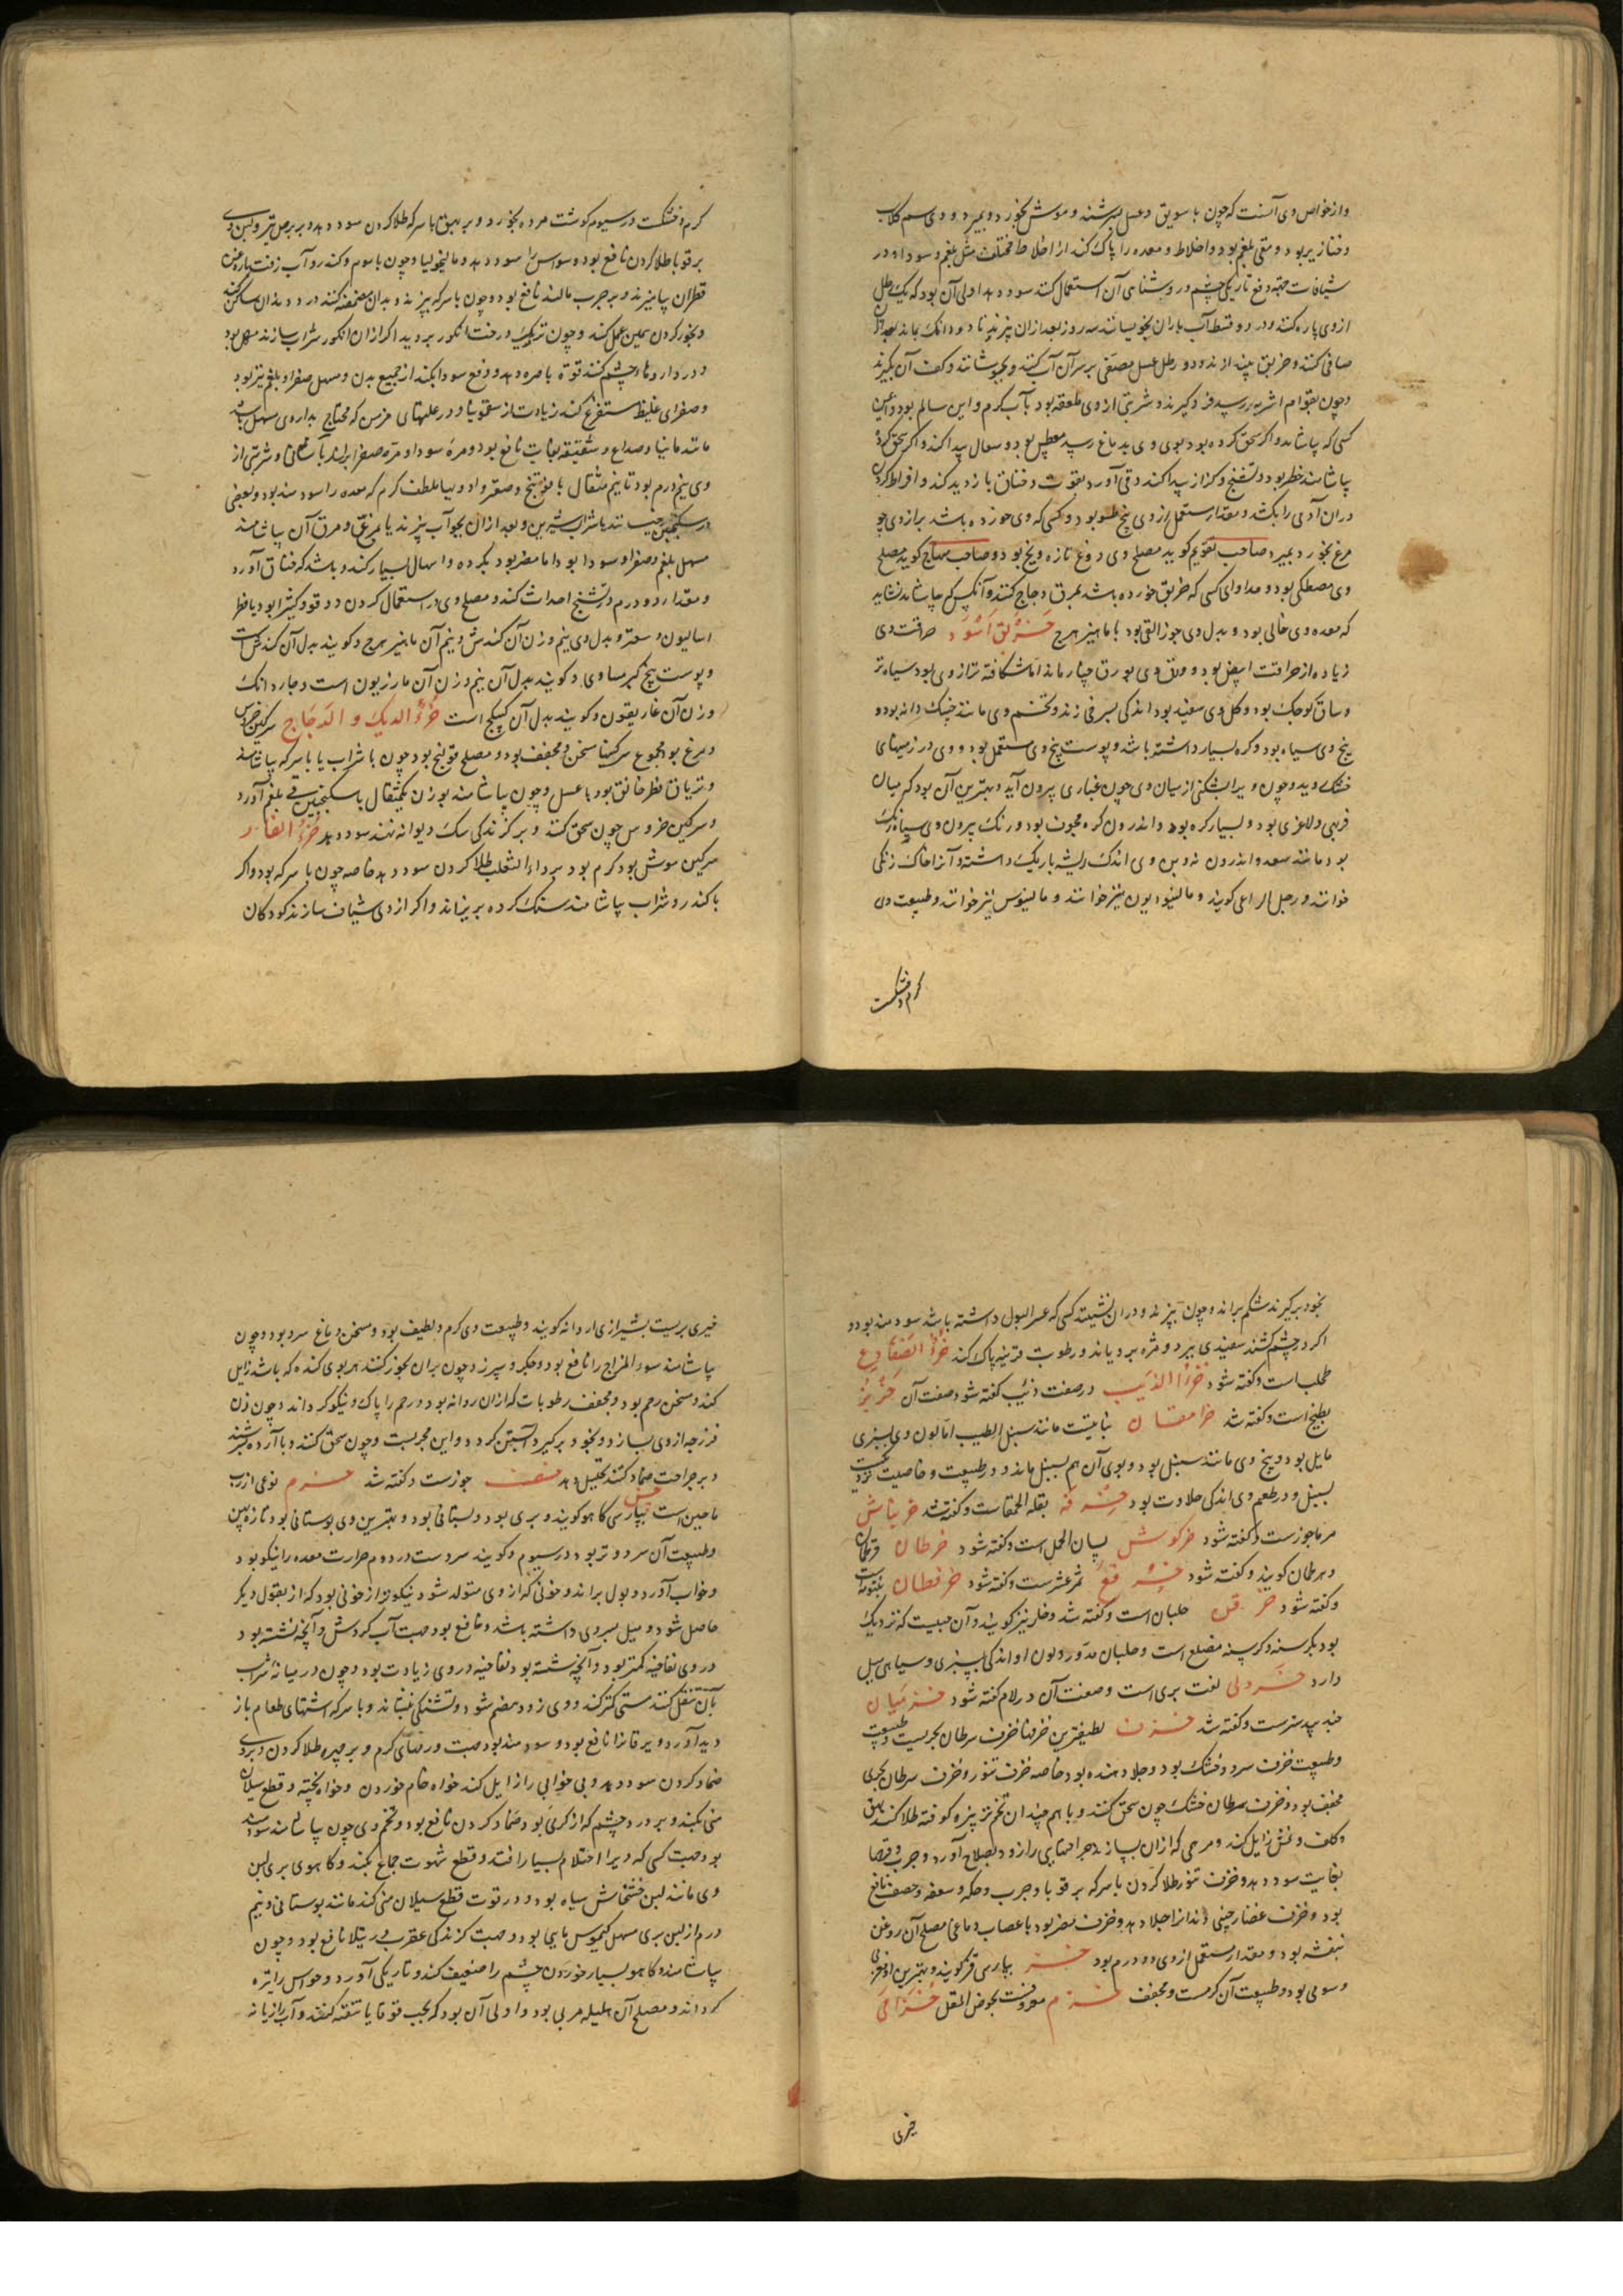 وازخواص وی آنست که چون با سویق و عسل بسرشند و موش بخورد بمیرد و وی سم کلاب
و خنازیر بود و منقی بلغم بود و اخلاط و معده را پاک کند از اخلاط مختلف مثل بلغم و سودا و در
شیافات جهة دفع تاریکی چشم و روشنایی آن استعمال کنند سود دهد اولی آن بود که یک رطل
ازوی پاره کنند و در دو قسط آب باران بخیسانند سه روز بعد ازان بپزند تا دو دانک بماند بعد ازان
صافی کنند و خربق بیندازند و دو رطل عسل مصفی بر سر آن آب کنند و بجوشانند و کف آن بگیرند
و چون بقوام اشربه رسد فرو گیرند و شربتی ازوی ملعقه بود بآب گرم و این سالم بود
کسی که بیاشامد و اگر سحق کرده بود بوی وی بدماغ رسد معطس بود و سعال پیدا کند و اگر سحق کرده
بیاشامند خطر بود و تشنج و کزاز پیدا کند و قی آورد بقوت و خناق بازدید کند و افراط کردن
دران آدمی را بکشد و مقدار مستعمل ازوی پنج طسو بود و کسی که وی خورده باشد براز وی چو
مرغ بخورد بمیرد صاحب تقویم گوید مصلح وی دوغ تازه و یخ بود و صاحب منهاج گوید مصلح
وی مصطکی بود و مداوای کسی که خربق خورده باشد بمرق دجاج کنند و آنکس که بیاشامد نشاید
که معده وی خالی بود و بدل وی جوز القی بود با ماهیزهرج خربق اسود حرافت وی
زیاده از حرافت ابیض بود و ورق وی بورق چنار ماند اما شکافته تر ازوی بود و سیاه تر
و ساق کوچک بود و گل وی سفید بود اندکی بسرخی زند و تخم وی مانند خسک دانه بود و
بیخ وی سیاه بود و گره بسیار داشته باشد و پوست بیخ وی مستعمل بود و وی در زمینهای
خشک روید و چون ویرا بشکنی از میان وی چون غباری بیرون آید و بهترین آن بود که میان
فربهی و لاغری بود و بسیار گره بود و اندرون گره مجوف بود و رنک بیرون وی سیاه رنک
بود مانند سعد و اندرون نه و بن وی اندک ریشه باریک داشته و آنرا خانک زنکی
خوانند و رجل الراعی گویند و مالینودیون نیز خوانند و مالینوس نیز خوانند و طبیعت وی
گرم و خشکست
گرم و خشکست در سیوم گوشت مرده بخورد و بر بهق با سرکه طلا کردن سود دهد و بر برص نیز و لبن وی
بر قوبا طلا کردن نافع بود و وسواس را سود دهد و مالیخولیا و چون با موم و کندر و آب زفت باره
قطران بیامیزند و بر جرب مالند نافع بود و چون با سرکه بپزند و بدان مضمضه کنند درد دندان ساکن کند
و بخور کردن همین عمل کند و چون نزدیک درخت انکور بروید اگر ازان انکور شراب سازند مسهل بود
و در داروهاء چشم کنند قوة باصره دهد و دفع سودا بکند از جمیع بدن و مسهل صفرا و بلغم نیز بود
و صفرای غلیظ مستفرغ کند زیادت از سقمونیا و در علتهای مزمن که محتاج بداروی مسهل باشد
مانند مانیا و صداع و شقیقه بغایت نافع بود و مره سودا و مره صفرا براند بآسانی و شربتی از
وی نیم درم بود تا نیم مثقال با فوتنج و صعتر و ادویها ملطف گرم که معده را سودمند بود و بعضی
در سکنجبین خیسانند یا شراب شیرین و بعد ازان بجو آب پزند یا بمرغ و مرق آن بیاشامند
مسهل بلغم و صفرا و سودا بود اما مضر بود بگرده و اسهال بسیار کند و باشد که خناق آورد
و مقدار دو درم در تشنج احداث کند و مصلح وی در استعمال کردن دوقو و کثیرا بود یا فطر
اسالیون و سعتر و بدل وی نیم وزن آن کندش و نیم آن ماهیزهرج و گویند بدل آن کندش است
و پوست بیخ کبر مساوی و گویند بدل آن نیم وزن آن مازریون است و چهار دانک
وزن آن غاریقون و گویند بدل آن کبیکج است خرء الدیک و الدجاج سرکین خروس
و مرغ بود مجموع سرکینها مسخن و مجفف بود و مصلح قولنج بود چون با شراب یا با سرکه بیاشامند
و تریاق فطر خانق بود با عسل و چون بیاشامند بوزن یکمثقال با سکنجبین قی بلغم آورد
و سرکین خروس چون سحق کنند و بر گزندگی سک دیوانه نهند سود دهد خرء الفار
سرکین موش بود گرم بود بر داء الثعلب طلا کردن سود دهد خاصه چون با سرکه بود و اگر
با کندر و شراب بیاشامند سنک گرده بریزاند و اگر ازوی شیاف سازند کودکان
بخود برگیرند شکم براند و چون بپزند و دران نشیند کسی که عسر البول داشته باشد سودمند بود و
اگر در چشم کشند سفیدی ببرد و مژه برویاند و رطوبت قرنیه پاک کند خرء الضفادع
طحلب است و گفته شود خرء الذیب در صفت ذئب گفته شود صفت آن خربز
بطیخ است و گفته شد خرامقان نباتیست مانند سنبل الطیب اما لون وی بسبزی
مایل بود و بیخ وی مانند سنبل بود و بوی آن هم بسنبل ماند و در طبیعت و خاصیت نزدیکست
بسنبل و در طعم وی اندکی حلاوت بود خرفه بقلة الحمقاست و گفته شد خرنباش
مرماحوزست و گفته شود خرگوش لسان الحمل است و گفته شود خرطان قرطمان
و هرطمان گویند و گفته شود خرفع ثمر عشرست و گفته شود خرفطان
و گفته شود خرقل جلبان است و گفته شد و خلر نیز گویند و آن حبیست که نزدیک
بود بکرسنه و کرسنه مضلع است و جلبان مدور و لون او اندکی بسبزی و سیاهی میل
دارد خردلی لغت بری است و صفت آن در لام گفته شود خزمیان
جند بیدسترست و گفته شد خزف لطیفترین خزفها خزف سرطان بحریست و طبیعت
و طبیعت خزف سرد و خشک بود و جلا دهنده بود خاصه خزف تنور و خزف سرطان بحری
مجفف بود و خزف سرطان خشک چون سحق کنند و با هم چندان تخم خربزه کوفته طلا کنند بهق
و کلف و نمش زایل کند و مرهمی که ازان بسازند جراحتهایی را زود بصلاح آورد و جرب و قرحها
بغایت سود دهد و خزف تنور طلا کردن با سرکه بر قوبا و جرب و حکه و سعفه و حصف نافع
بود و خزف غضار چینی دندانرا جلا دهد و خزف مضر بود باعصاب دماغی مصلح آن روغن
بنفشه بود و مقدار مستعمل ازوی دو درم بود خز بپارسی قز گویند و بهترین او مغربی
و سوسی بود و طبیعت آن گرمست و مجفف خزم معروفست بخوص المقل خزامی
خیری
خیری بریست بشیرازی اروانه گویند و طبیعت وی گرم و لطیف بود و مسخن دماغ سرد بود و چون
بیاشامند سود المزاج را نافع بود و جگر و سپرز و چون بران بخور کنند هر بوی گنده که باشد زایل
کند و مسخن رحم بود و مجفف رطوبات که ازان روانه بود و رحم را پاک و نیکو گرداند و چون زن
فرزجه ازوی بسازد و بخود برگیرد آبستن گردد و این مجربست و چون سحق کنند و با آرد بسرشند
و بر جراحت ضماد کنند تحلیل دهد خسف جوزست و گفته شد خسرم نوعی از
ماحین است خس بپارسی کاهو گویند و بری بود و بستانی بود و بهترین وی بوستانی بود تازه پهن
و طبیعت آن سرد و تر بود در سیوم و گویند سردست در دوم حرارت معده را نیکو بود
و خواب آورد و بول براند و خونی که ازوی متولد شود نیکوتر از خونی بود که از بقول دیگر
حاصل شود و میل بسردی داشته باشد و نافع بود جهت آب گردش و آنچه نشسته بود
در وی نفاخیه کمتر بود و آنچه شسته بود نفاخیه در وی زیادت بود و چون در میانه شراب
بآن تنقل کنند مستی کمتر کند و وی زود هضم شود و تشنگی بنشاند و با سرکه اشتهای طعام باز
دید آورد و یرقانرا نافع بود و سودمند بود جهت ورمهای گرم و بر چهره طلا کردن و بروی
ضماد کردن سود دهد و بی خوابی را زایل کند خواه خام خوردن و خواه پخته و قطع سیلان
منی بکند و بر درد چشم که از گرمی بود ضماد کردن نافع بود و تخم وی چون بیاشامند سودمند
بود جهت کسی که ویرا احتلام بسیار افتد و قطع شهوت جماع بکند و کاهوی بری لبن
وی مانند لبن خشخاش سیاه بود و در قوت قطع سیلان منی کند مانند بوستانی و نیم
درم از لبن بری مسهل کیموس مایی بود و جهت گزندگی عقرب و رتیلا نافع بود و چون
بیاشامند و کاهو بسیار خوردن چشم را ضعیف کند و تاریکی آورد و حواس را تیره
گرداند و مصلح آن هلیله مربی بود و اولی آن بود که بحب قوقایا تنقیه کنند و آب رازیانه